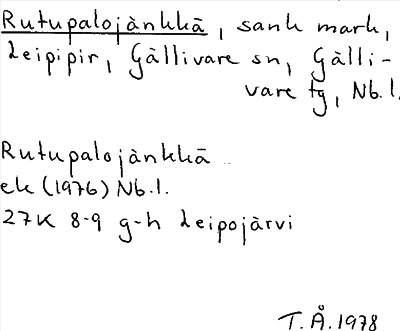 Rutupalojänkkä, sank mark,
Leipipir, Gällivare sn, Gälli-
vare tg, Nb.l.
Rutupalojänkkä
ek (1976) Nb.l.
27K 8-9 g-h Leipojärvi
T.Å.1978